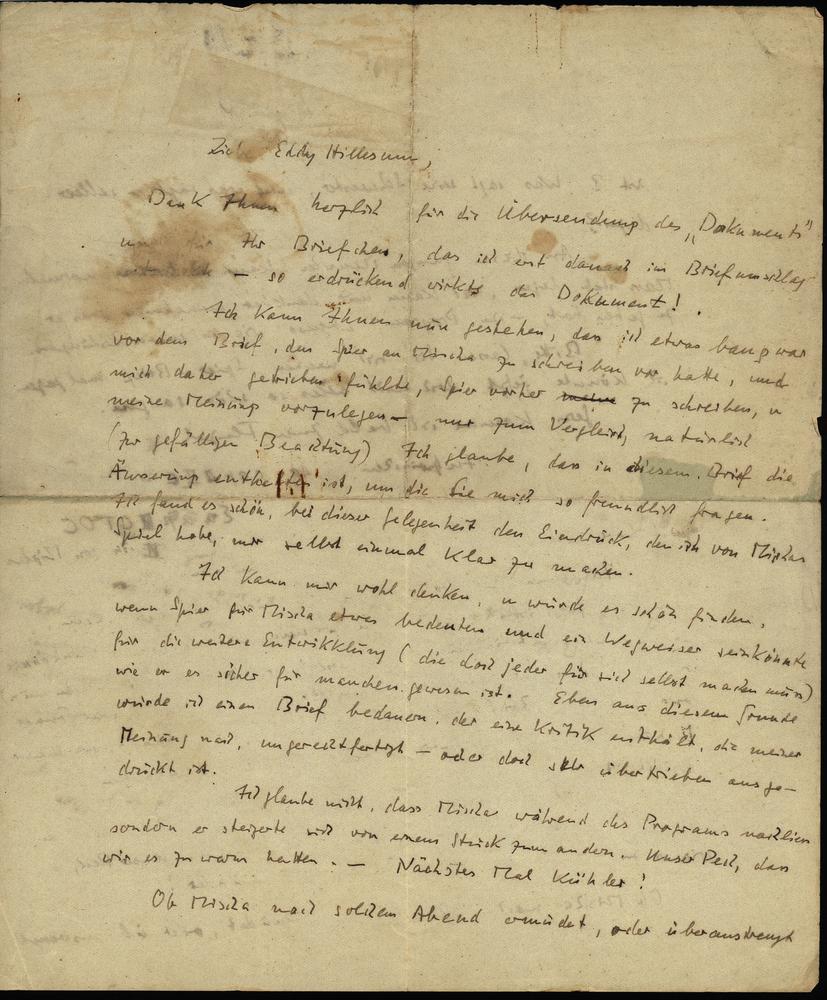 Liebe Etty Hillesum,
Dank Ihnen herzlich für die Übersendung des „Dokuments"
und für Ihr Briefchen, das ich erst danach im Briefumschlag
— so erdrückend wirkte das Dokument!
Ich kann Ihnen nun gestehen, dass ich etwas bang war
vor dem Brief, den Spier an Mischa zu schreiben vor hatte, und
mich daher getrieben fühlte, Spier vorher zu schreiben, u
meine Meinung vorzulegen — nur zum Vergleich, natürlich
(zur gefälligen Beachtung) Ich glaube, dass in diesem Brief die
Äusserung enthalten ist, um die Sie mich so freundlich fragen.
Ich fand es schön, bei dieser gelegenheit den Eindruck, den ich von Mischas
Spiel habe, mir selbst einmal klar zu machen.
Ich kann mir wohl denken, u würde es schön finden,
wenn Spier für Mischa etwas bedeuten und ein Wegweiser sein könnte
für die weitere Entwikklung (die doch jeder für sich selbst machen muss)
wie er es sicher für manchen gewesen ist. Eben aus diesem Grunde
würde ich einen Brief bedauern, der eine Kritik enthält, die meiner
Meinung nach, ungerechtfertigt — oder doch sehr übertrieben ausge—
drückt ist.
Ich glaube nicht, dass Mischa während des Programs nachliess
sondern er steigerte sich von einem Stück zum andern. Unser Pech, dass
wir es zu warm hatten. — Nächstes Mal Kühler!
Ob Mischa nach solchem Abend ermüdet, oder überanstrengt